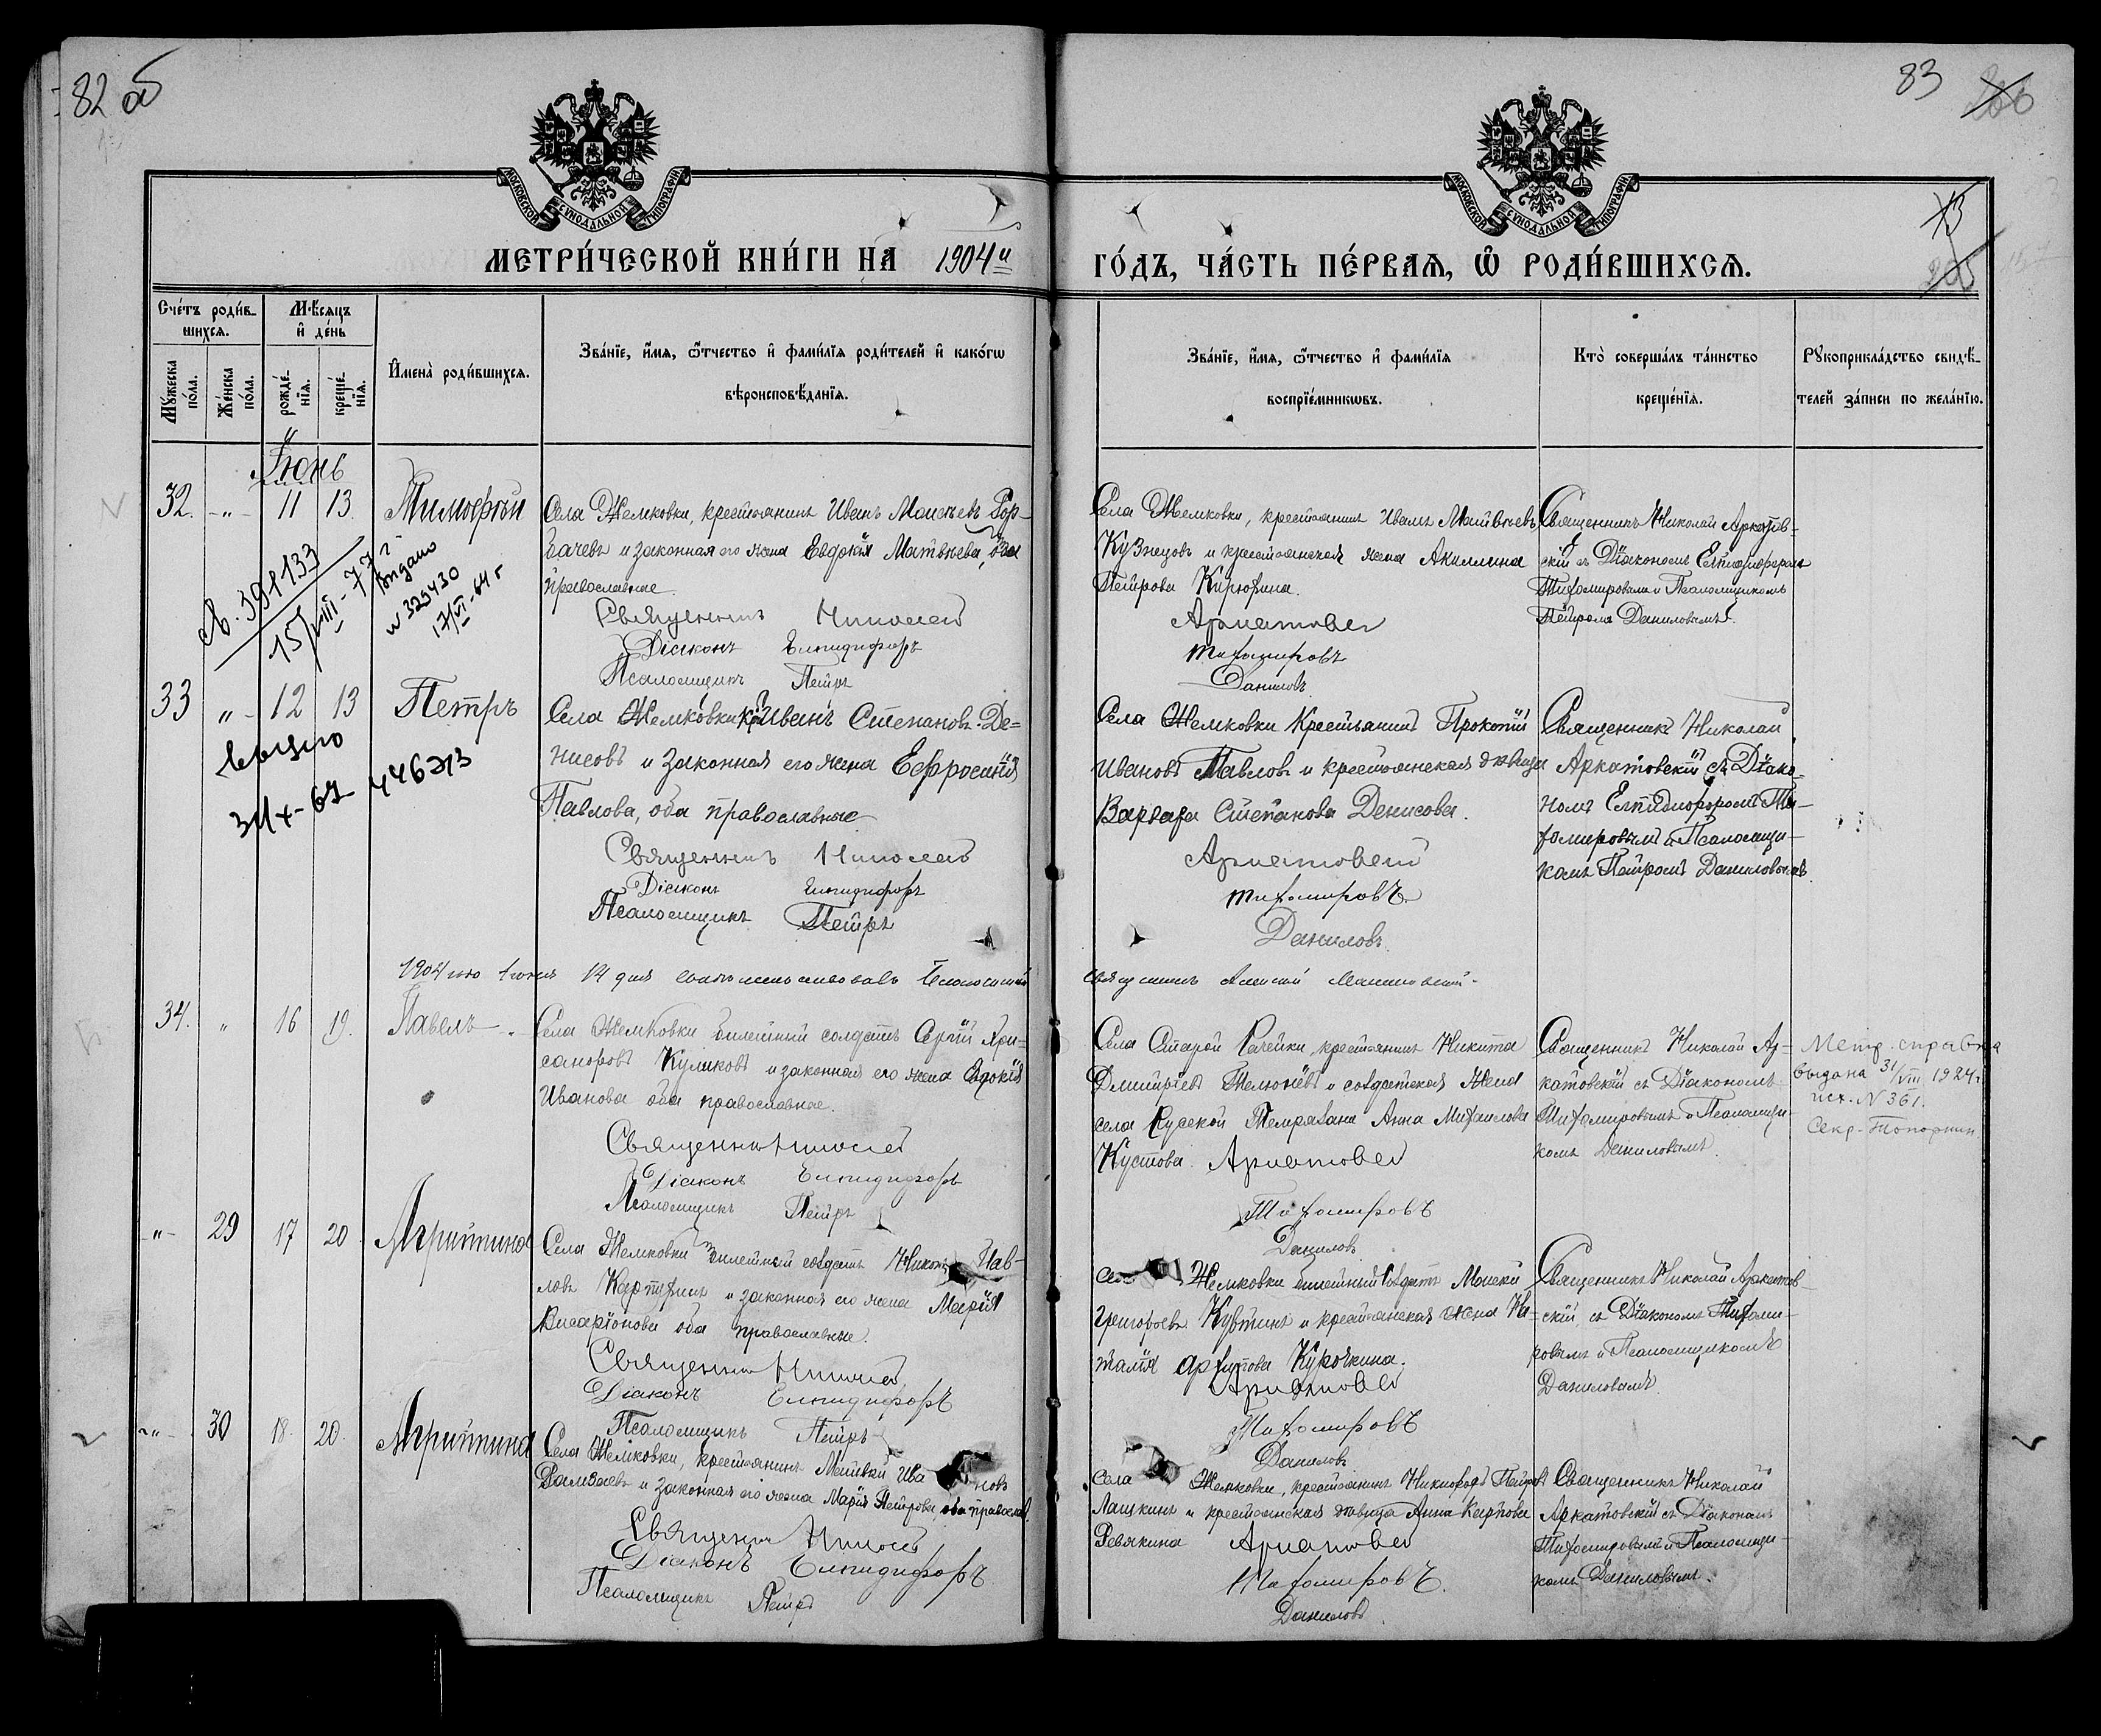 82 об
83
МОСКОВСКОЙ СУНОДАЛЬНОЙ ТИПОГРАФІИ
МОСКОВСКОЙ СУНОДАЛЬНОЙ ТИПОГРАФІИ
МЕТРИ́ЧЕСКОЙ КНИ́ГИ НА 1904й
ГО́ДЪ, ЧА́СТЬ ПЕ́РВАѦ, Ѽ РОДИ́ВШИХСѦ.
Сче́тъ роди́в-
шихсѧ.
Мѣ́сѧцъ
и҆ де́нь
Мꙋ́жеска по́ла.
Же́нска по́ла.
рожде́-
нїѧ.
креще́-
нїѧ.
И҆мена̀ роди́вшихсѧ.
Зва́нїе, и҆́мѧ, ѻ҆́тчество и҆ фами́лїѧ роди́телей и҆ како́гѡ
вѣроисповѣ́данїѧ.
Зва́нїе, и҆́мѧ, ѻ҆́тчество и҆ фами́лїѧ
воспрїе́мникѡвъ.
Кто̀ соверша́лъ та́инство
креще́нїѧ.
Рꙋкоприкла́дство свидѣ́-
телей за́писи по жела́нїю.
Іюнь
32. -"- 11 13 Тимоѳей
Села Жемковки, крестьянинъ Иванъ Моисѣевъ Гор-
бачевъ и законная его жена Евдокія Матвѣева, оба
православные.
Священникъ Николай
Діаконъ Елпидифоръ
Псаломщикъ Петръ
Села Жемковки, крестьянинъ Иванъ Матвѣевъ
Кузнецовъ и крестьянская жена Акилина
Петрова Кирюхина.
Аркатовск
Тихомировъ
Даниловъ
Священникъ Николай Аркатов-
скій съ Діакономъ Елпидифоромъ
Тихомировымъ и Псаломщикомъ
Петромъ Даниловымъ.
св. 391133
15/VIII-77г
выдано
№ 325430
17/VI-64г
33 "- 12 13 Петръ
Села Жемковки кр. Иванъ Степановъ Де-
нисовъ и законная его жена Ефросинія
Павлова, оба православные
Священникъ Николай
Діаконъ Елпидифоръ
Псаломщикъ Петръ
Села Жемковки Крестьянинъ Прокопій
Ивановъ Павловъ и крестьянская дѣвица
Варвара Степанова Денисова.
Аркатовскій
Тихомировъ
Даниловъ.
Священникъ Николай
Аркатовскій съ Діако-
номъ Елпидифоромъ Ти-
хомировымъ и Псаломщи-
комъ Петромъ Даниловымъ
1904 года Іюня 14 дня свидѣтельствовалъ
священникъ Алексій
34. " 16 19. Павелъ
Села Жемковки билетный солдатъ Сергій Хри-
санфовъ Куликовъ и законная его жена Евдокія
Иванова оба православные.
Священникъ Николай
Діаконъ Елпидифоръ
Псаломщикъ Петръ
Села Старой Рачейки, крестьянинъ Никита
Дмитріевъ и солдатская жена
села Русской Темрязани Анна Михайлова
Кустова. Аркатовск
Тихомировъ
Даниловъ
Священникъ Николай Ар-
катовскій съ Діакономъ
Тихомировымъ и Псаломщи-
комъ Даниловымъ.
Метр. справка
выдана 31/VIII 1924г
исх. N 361.
Секр.
-"- 29 17 20 Агриппина
Села Жемковки билетный солдатъ Никонъ Пав-
ловъ и законная его жена Марія
Висаріонова оба православные.
Священникъ Николай
Діаконъ Елпидифоръ
Псаломщикъ Петръ
Села Жемковки билетный солдатъ Моисей
Григорьевъ и крестьянская жена На-
талія Курочкина.
Аркатовск
Тихомировъ
Даниловъ
Священникъ Николай Аркатов-
скій, съ Діакономъ Тихоми-
ровымъ и Псаломщикомъ
Даниловымъ.
-"- 30 18. 20. Агриппина
Села Жемковки, крестьянинъ Матвѣй Ивановъ
Рамзаевъ и законная его жена Марія Петрова, оба православ.
Священникъ Николай
Діаконъ Елпидифоръ
Псаломщикъ Петръ
Села Жемковки, крестьянинъ Никифоръ Петровъ
Лашкинъ и крестьянская дѣвица Анна Карпова
Ревякина Аркатовск
Тихомировъ.
Даниловъ.
Священникъ Николай
Аркатовскій съ Діакономъ
Тихомировымъ и Псаломщи-
комъ Даниловымъ.